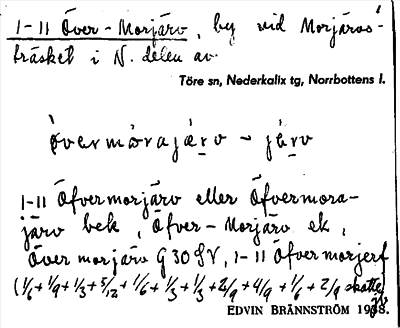 1-11 Över-Morjärv, by vid Morjärvs-
träsket i N. delen av
Töre sn, Nederkalix tg, Norrbottens l.
övermòrajæ̀rv - jærv
1-11 Öfvermorjärv eller Öfvermora-
järv bek, Öfver-Morjärv ek,
Övermorjärv G30SV, 1-11 Öfvermorjerf
(1/6 + 1/9 + 1/3 + 5/12 + 1/6 + 1/3 + 1/3 + 2/9 + 4/9 + 1/6 + 2/9 skatte)
EDVIN BRÄNNSTRÖM